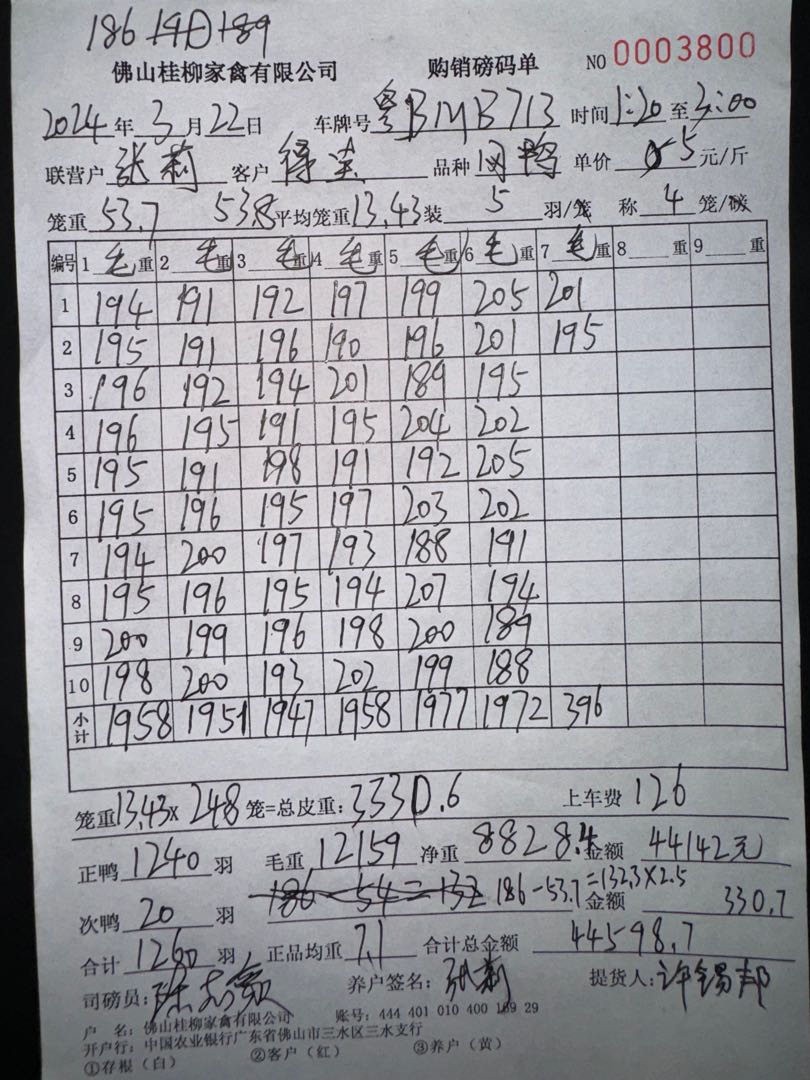 186 190 189
佛山桂柳家禽有限公司 购销磅码单 NO 0003800
2024 年 3 月 22 日 车牌号 粤BMB713 时间 1:20 至 3:00
联营户 张莉 客户 得宝 品种 肉鸭 单价 5 元/斤
笼重 53.7 53.8 平均笼重 13.43 装 5 羽/笼 称 4 笼/磅
编号 1 毛重 2 毛重 3 毛重 4 毛重 5 毛重 6 毛重 7 毛重 8 重 9 重
1 194 191 192 197 199 205 201
2 195 191 196 190 196 201 195
3 196 192 194 201 189 195
4 196 195 191 195 204 202
5 195 191 198 191 192 205
6 195 196 195 197 203 202
7 194 200 197 193 188 191
8 195 196 195 194 207 194
9 200 199 196 198 200 189
10 198 200 193 202 199 188
小计 1958 1951 1947 1958 1977 1972 396
笼重 13.43× 248 笼=总皮重: 3330.6 上车费 126
正鸭 1240 羽 毛重 12159 净重 8828.4 金额 44142元
次鸭 20 羽 186-54=132 186-53.7=132.3×2.5 金额 330.7
合计 1260 羽 正品均重 7.1 合计总金额 44598.7
司磅员: 养户签名: 张莉 提货人: 许锡邦
户 名: 佛山桂柳家禽有限公司 账号: 444 401 010 400 169 29
开户行: 中国农业银行广东省佛山市三水区三水支行
①存根(白) ②客户(红) ③养户(黄)